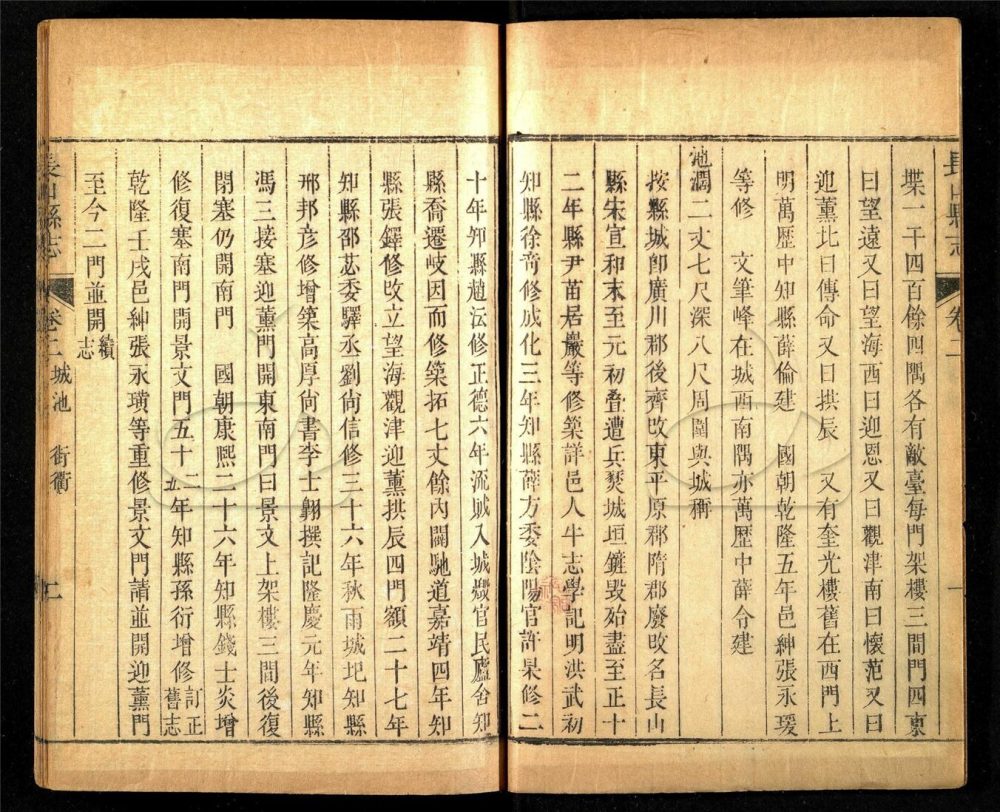 長山縣志
卷二
一
堞一千四百餘四隅各有敵臺每門架樓三間門四東
曰望遠又曰望海西曰迎恩又曰觀津南曰懷范又曰
迎薰北曰傳命又曰拱辰 又有奎光樓舊在西門上
明萬歷中知縣薛倫建 國朝乾隆五年邑紳張永瑗
等修 文筆峰在城西南隅亦萬歷中薛令建
池濶二丈七尺深八尺周圍與城稱
按縣城卽廣川郡後齊改東平原郡隋郡廢改名長山
縣宋宣和末至元初疊遭兵燹城垣鏟毀殆盡至正十
二年縣尹苗居巖等修築詳邑人牛志學記明洪武初
知縣徐奇修成化三年知縣薛方委陰陽官許杲修二
十年知縣趙沄修正德六年流賊入城燬官民廬舍知
縣喬遷岐因而修築拓七丈餘內闢馳道嘉靖四年知
縣張鐸修改立望海觀津迎薰拱辰四門額二十七年
知縣邵苾委驛丞劉尙信修三十六年秋雨城圯知縣
邢邦彥修增築高厚尙書李士翺撰記隆慶元年知縣
馮三接塞迎薰門開東南門曰景文上架樓三間後復
閉塞仍開南門 國朝康熙二十六年知縣錢士炎增
修復塞南門開景文門五十二五年知縣孫衍增修訂正舊志
乾隆壬戌邑紳張永璜等重修景文門請並開迎薰門
至今二門並開續志
長山縣志
卷二 城池 街衢
二